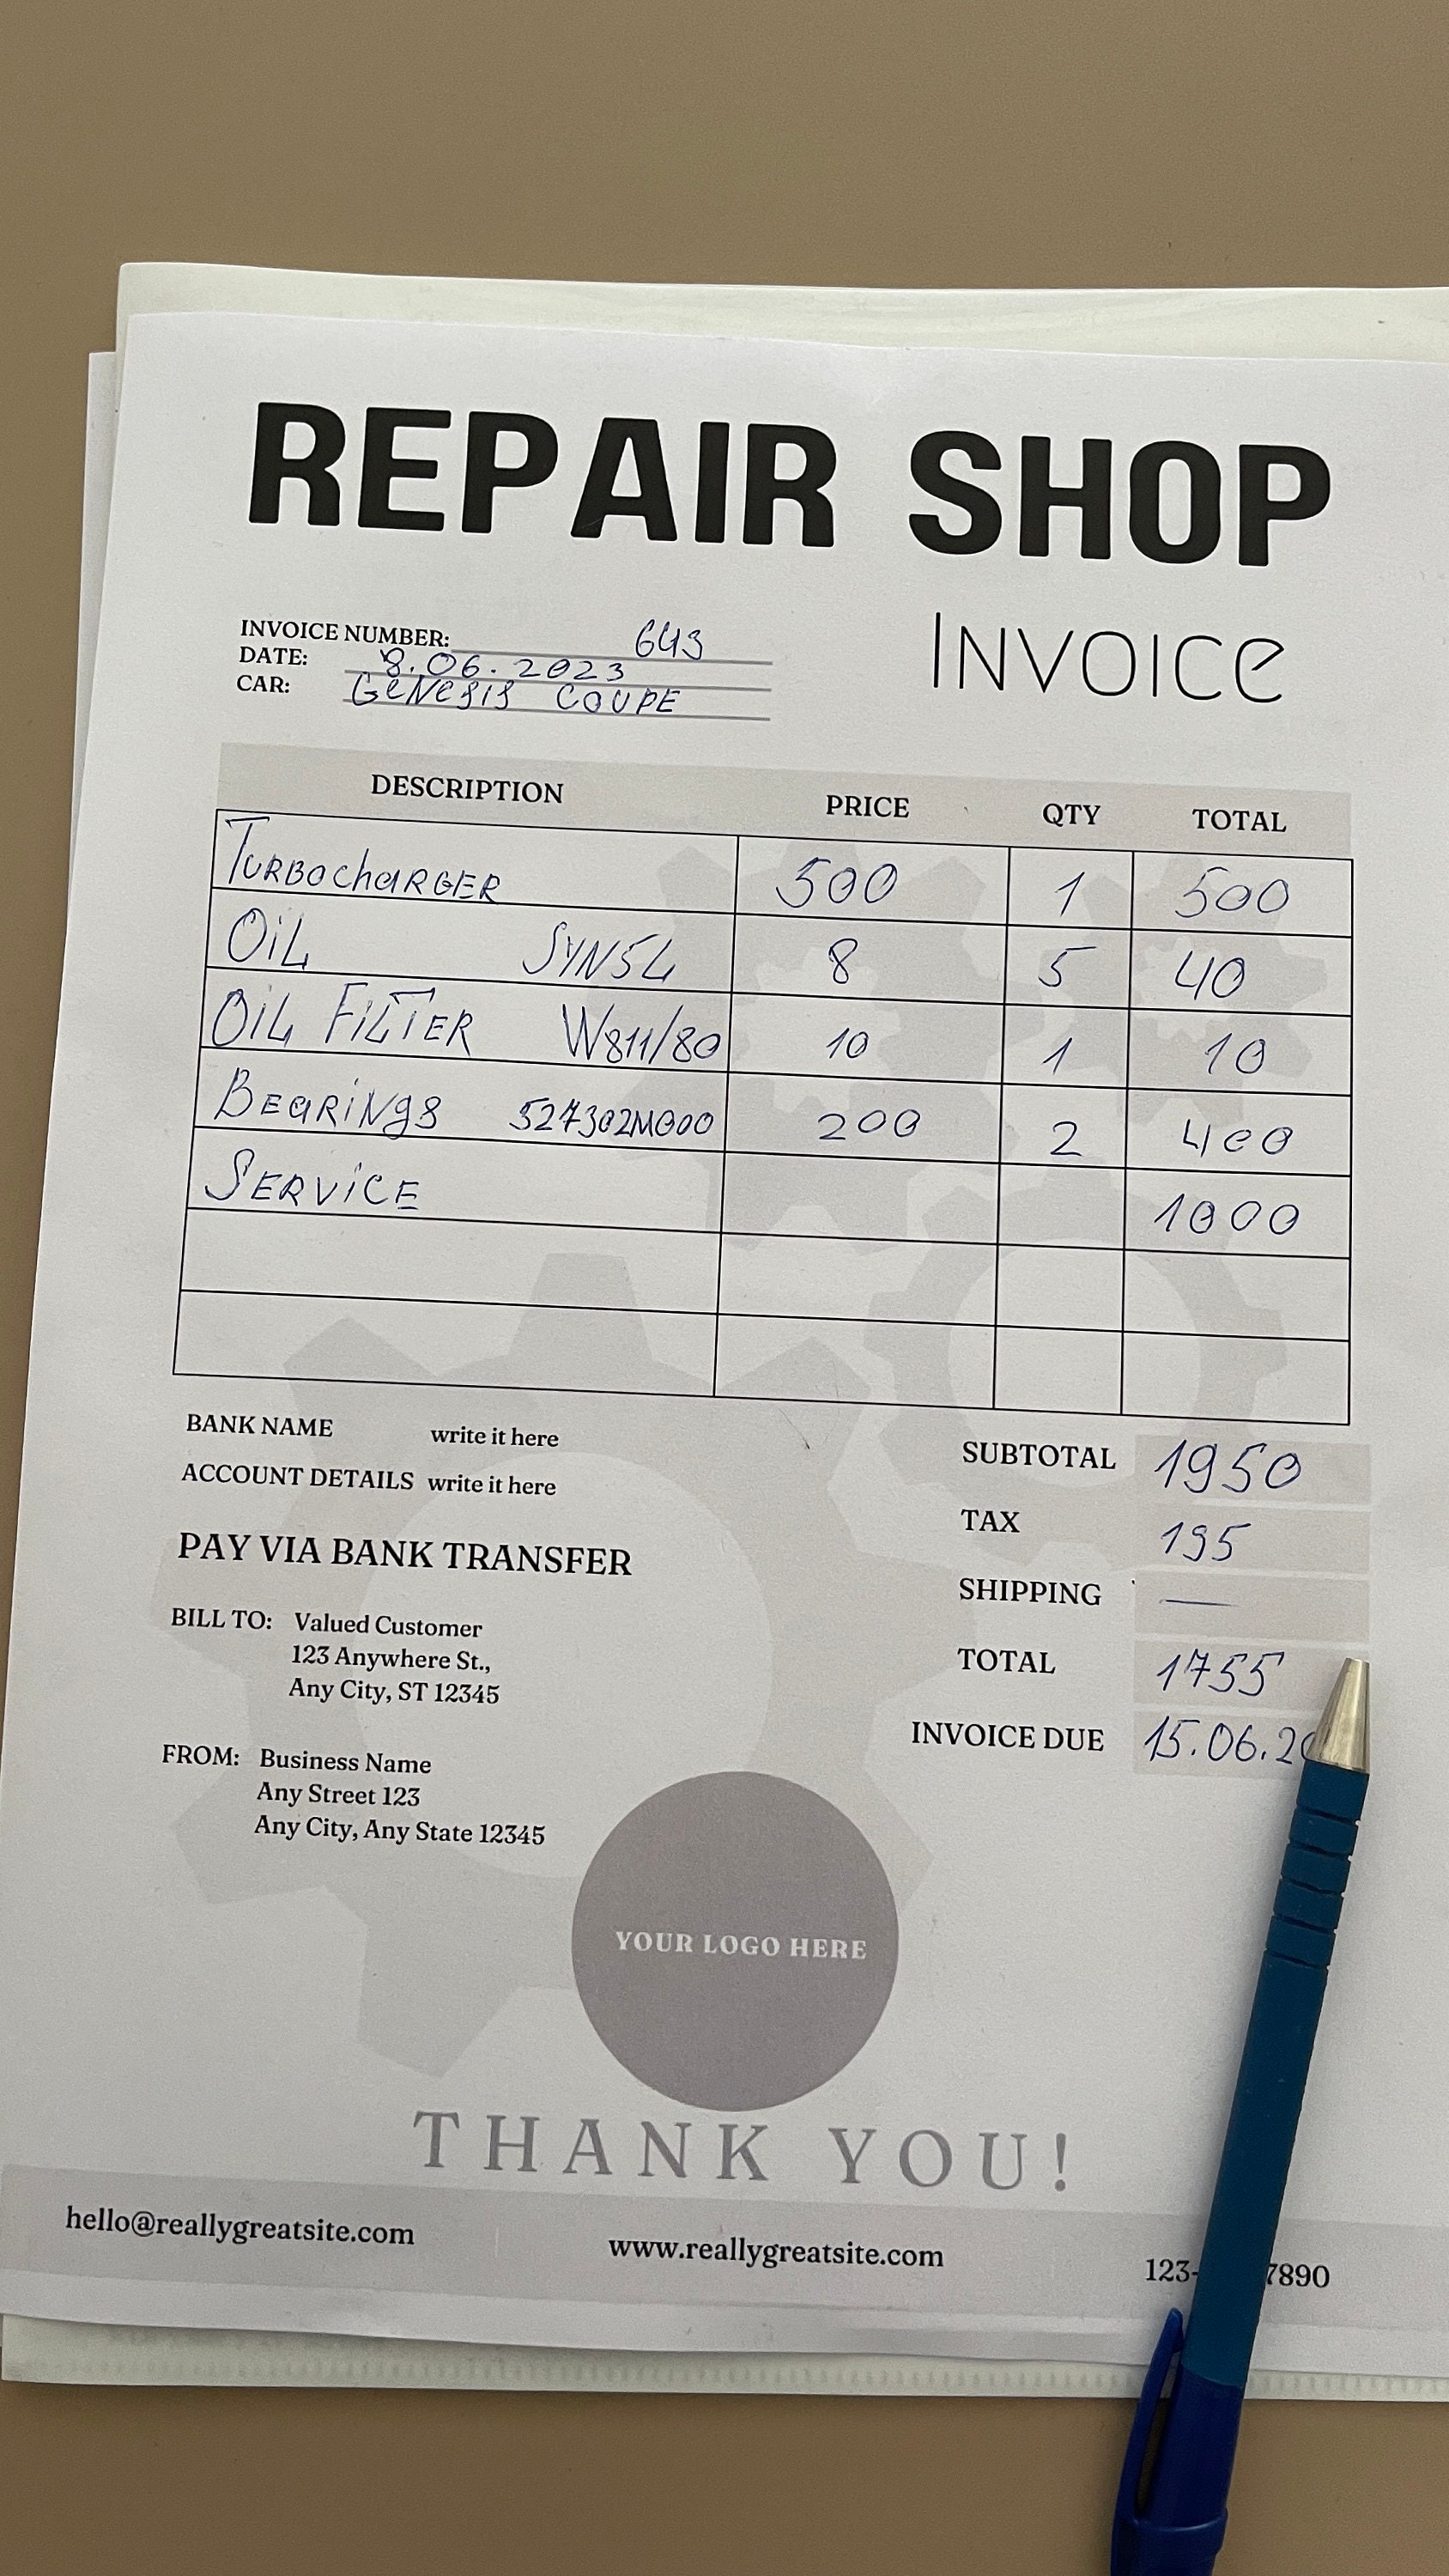 REPAIR SHOP
Invoice
INVOICE NUMBER: 643
DATE: 8.06.2023
CAR: Genesis COUPE
DESCRIPTION PRICE QTY TOTAL
TURBOchaRGER 500 1 500
OiL SYN5L 8 5 40
OiL FiLTER W811/80 10 1 10
BEaRiNgs 527302M000 200 2 400
SERViCE 1000
BANK NAME write it here
ACCOUNT DETAILS write it here
PAY VIA BANK TRANSFER
BILL TO: Valued Customer
123 Anywhere St.,
Any City, ST 12345
FROM: Business Name
Any Street 123
Any City, Any State 12345
SUBTOTAL 1950
TAX 195
SHIPPING —
TOTAL 1755
INVOICE DUE 15.06.20
YOUR LOGO HERE
THANK YOU!
hello@reallygreatsite.com www.reallygreatsite.com 123- 7890